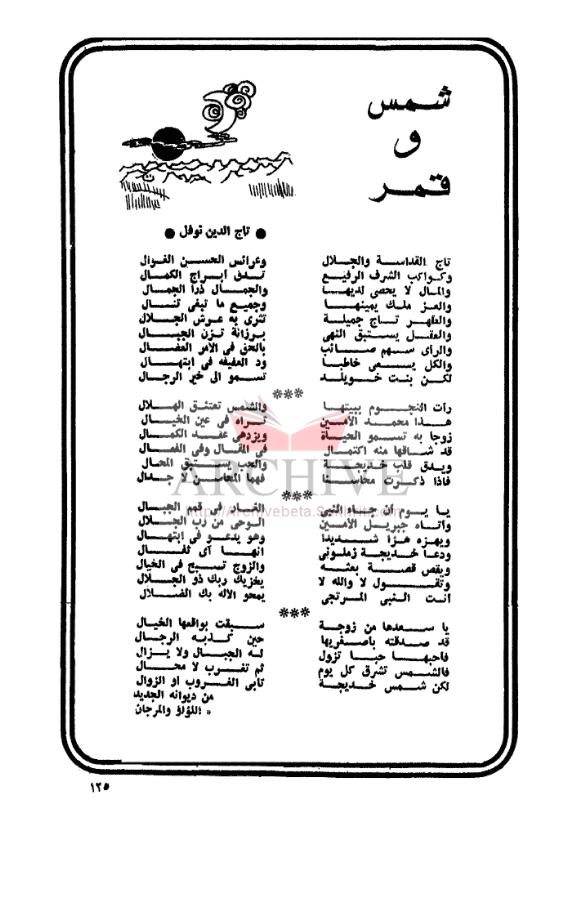 شمس
و
قمر
● تاج الدين نوفل ●
تاج القداسة والجلال وعرائس الحسن الغوال
وكواكب الشرف الرفيع تدق أبراج الكمال
والمال لا يحصى لديها والجمال ذرا الجمال
والعز ملك يمينها وجميع ما تبغى تنال
والطهر تاج جميلة تثرى به عرش الجلال
والعقل يستبق النهى برزانة تزن الجبال
والراى سهم صائب بالحق فى الامر العضال
والكل يسعى خاطبا ود العفيفه فى ابتهال
لكن بنت خويلد تسمو الى خير الرجال
***
رأت النجوم ببيتها والشمس تعتنق الهلال
هذا محمد الأمين تراه فى عين الخيال
زوجا به تسمو الحياة ويزدهى عقد الكمال
قد شاقها منه اكتمال فى المقال وفى الفعال
ويدق قلب خديجة والحب يستبق المحال
فاذا ذكرت محاسنا فهما المحاسن لا جدال
***
يا يوم أن جاء النبى الغار فى قمم الجبال
وأتاه جبريل الأمين الوحى من رب الجلال
ويهزه هزا شديدا وهو يدعو فى ابتهال
ودعا خديجة زملونى انها آى ثقال
ويقص قصة بعثه والزوج تسبح فى الخيال
وتقول لا والله لا يخزيك ربك ذو الجلال
أنت النبى المرتجى يمحو الاله بك الضلال
***
يا سعدها من زوجة سبقت بواقعها الخيال
قد صدقته باصغريها حين كذبه الرجال
فاحبها حبا تزول له الجبال ولا يزال
فالشمس تشرق كل يوم ثم تغرب لا محال
لكن شمس خديجة تأبى الغروب او الزوال
من ديوانه الجديد
« اللؤلؤ والمرجان
ARCHIVE
١٢٥